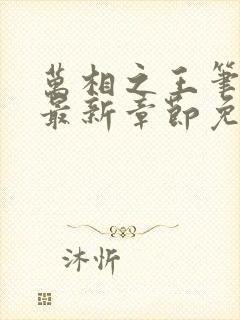 萬相之王筆
最新章節免
沐忻